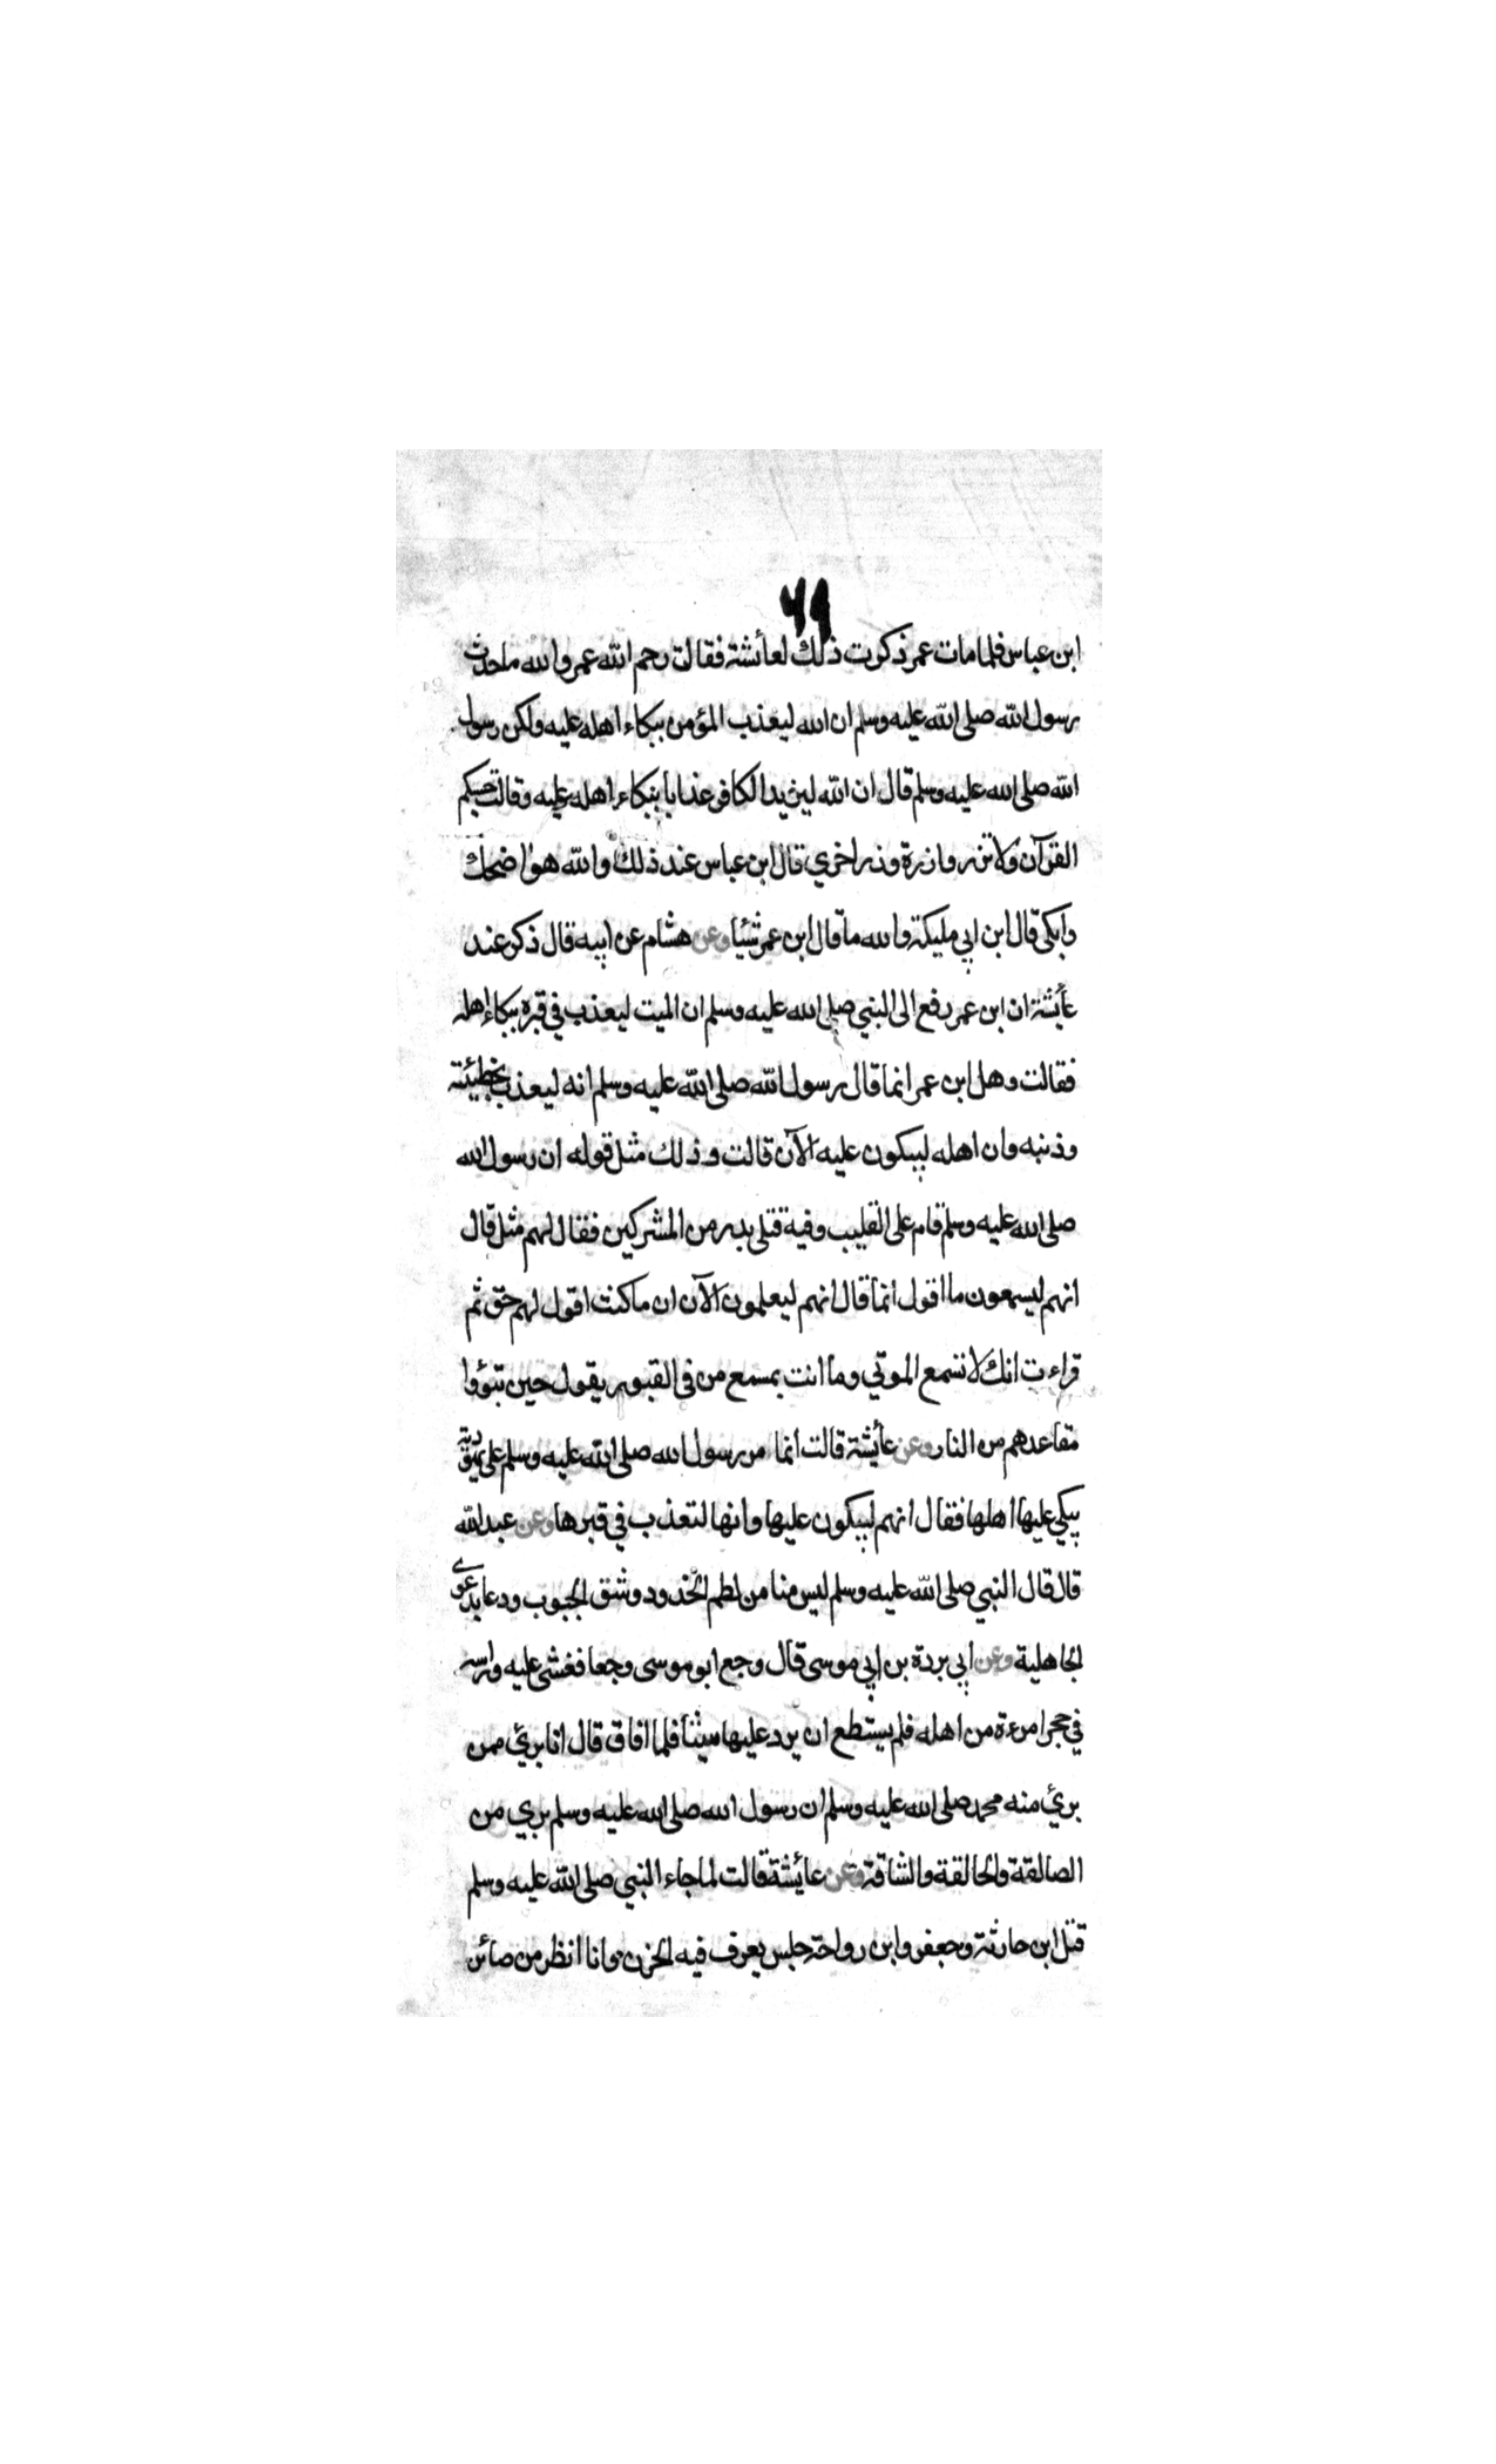 ٤٩
ابن عباس فلما مات عمر ذكرت ذلك لعائشة فقالت رحم الله عمر والله ما حدث
رسول الله صلى الله عليه وسلم ان الله ليعذب المؤمن ببكاء اهله عليه ولكن رسول
الله صلى الله عليه وسلم قال ان الله ليزيد الكافر عذابا ببكاء اهله عليه وقالت حسبكم
القرآن ولا تزر وازرة وزر اخري قال ابن عباس عند ذلك والله هو اضحك
وابكى قال ابن ابي مليكة والله ما قال ابن عمر شيئا وعن هشام عن ابيه قال ذكر عند
عائشة ان ابن عمر رفع الى النبي صلى الله عليه وسلم ان الميت ليعذب في قبره ببكاء اهله
فقالت وهل ابن عمر انما قال رسول الله صلى الله عليه وسلم انه ليعذب بخطيئته
وذنبه وان اهله ليبكون عليه الآن قالت وذلك مثل قوله ان رسول الله
صلى الله عليه وسلم قام على القليب وفيه قتلى بدر من المشركين فقال لهم مثل قال
انهم ليسمعون ما اقول انما قال انهم ليعلمون الآن ان ما كنت اقول لهم حق ثم
قراءت انك لا تسمع الموتي وما انت بمسمع من في القبور يقول حين تبوؤا
مقاعدهم من النار وعن عائشة قالت انما مر رسول الله صلى الله عليه وسلم على يهودية
يبكي عليها اهلها فقال انهم ليبكون عليها وانها لتعذب في قبرها وعن عبد الله
قال قال النبي صلى الله عليه وسلم ليس منا من لطم الخدود وشق الجيوب ودعا بدعوى
الجاهلية وعن ابي بردة بن ابي موسى قال وجع ابو موسى وجعا فغشى عليه وراسه
في حجر امرءة من اهله فلم يستطع ان يرد عليها شيئا فلما افاق قال انا برئ ممن
برئ منه محمد صلى الله عليه وسلم ان رسول الله صلى الله عليه وسلم بري من
الصالقة والحالقة والشاقة وعن عائشة قالت لما جاء النبي صلى الله عليه وسلم
قتل ابن حارثة وجعفر وابن رواحة جلس يعرف فيه الحزن وانا انظر من صائر